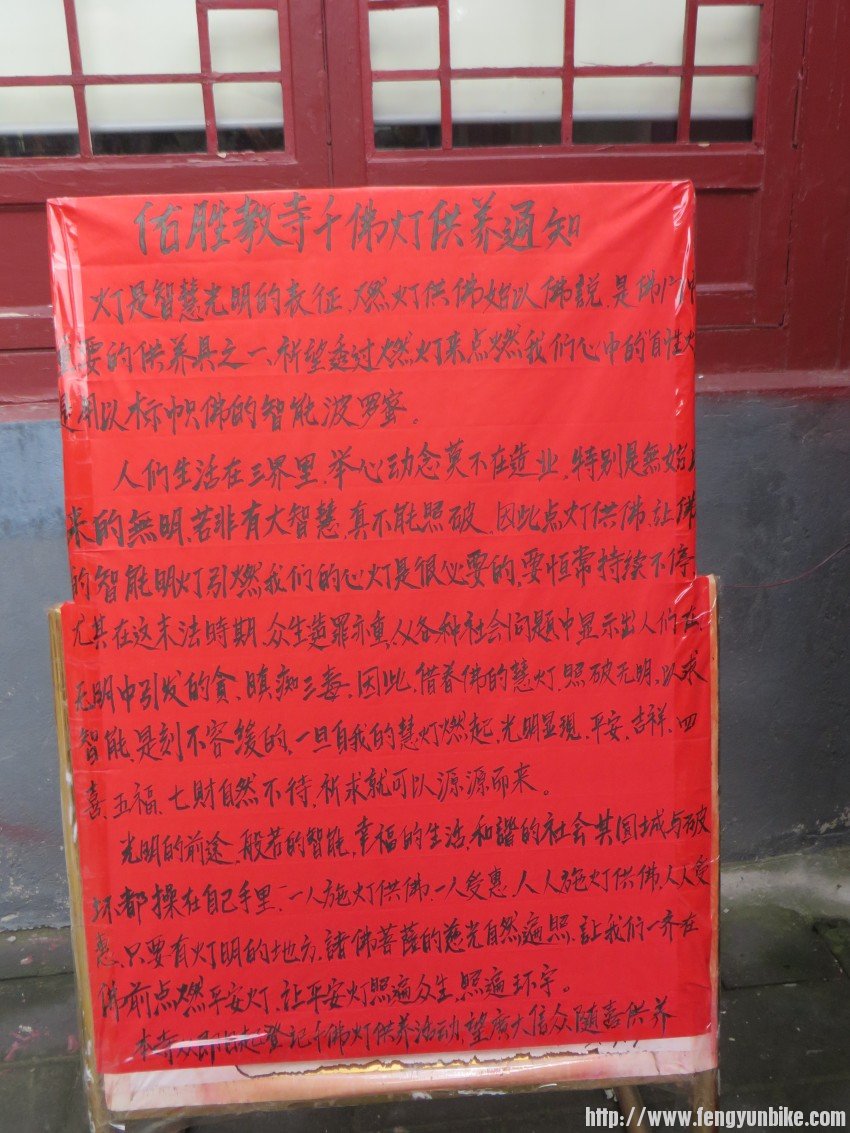 佑胜教寺千佛灯供养通知
灯是智慧光明的表征，燃灯供佛始以佛説，是佛门中
要的供养具之一，祈望透过燃灯来点燃我们心中的自性
用以标帜佛的智能波罗蜜。
人们生活在三界里，举心动念莫不在造业，特别是無始
来的無明，若非有大智慧，真不能照破，因此点灯供佛，让佛
的智能明灯引燃我们的心灯是很必要的，要恒常持续不停，
尤其在这末法時期，众生造罪亦重，从各种社会问题中显示出人们在
无明中引发的貪、瞋痴三毒，因此，借着佛的慧灯，照破无明，以求
智能，是刻不容缓的，一旦自我的慧灯燃起，光明显現，平安，吉祥，四
喜、五福、七財自然不待，祈求就可以源源而来。
光明的前途，般若的智能，幸福的生活，和諧的社会共圆城与破
坏都操在自己手里，一人施灯供佛，一人受惠，人人施灯供佛，人人受
惠，只要有灯明的地方，諸佛菩薩的慈光自然遍照，让我们一齐在
佛前点燃平安灯，让平安灯照遍众生，照遍环宇。
本寺从即日起登记千佛灯供养活动，望广大信众随喜供养
http://www.fengyunbike.com